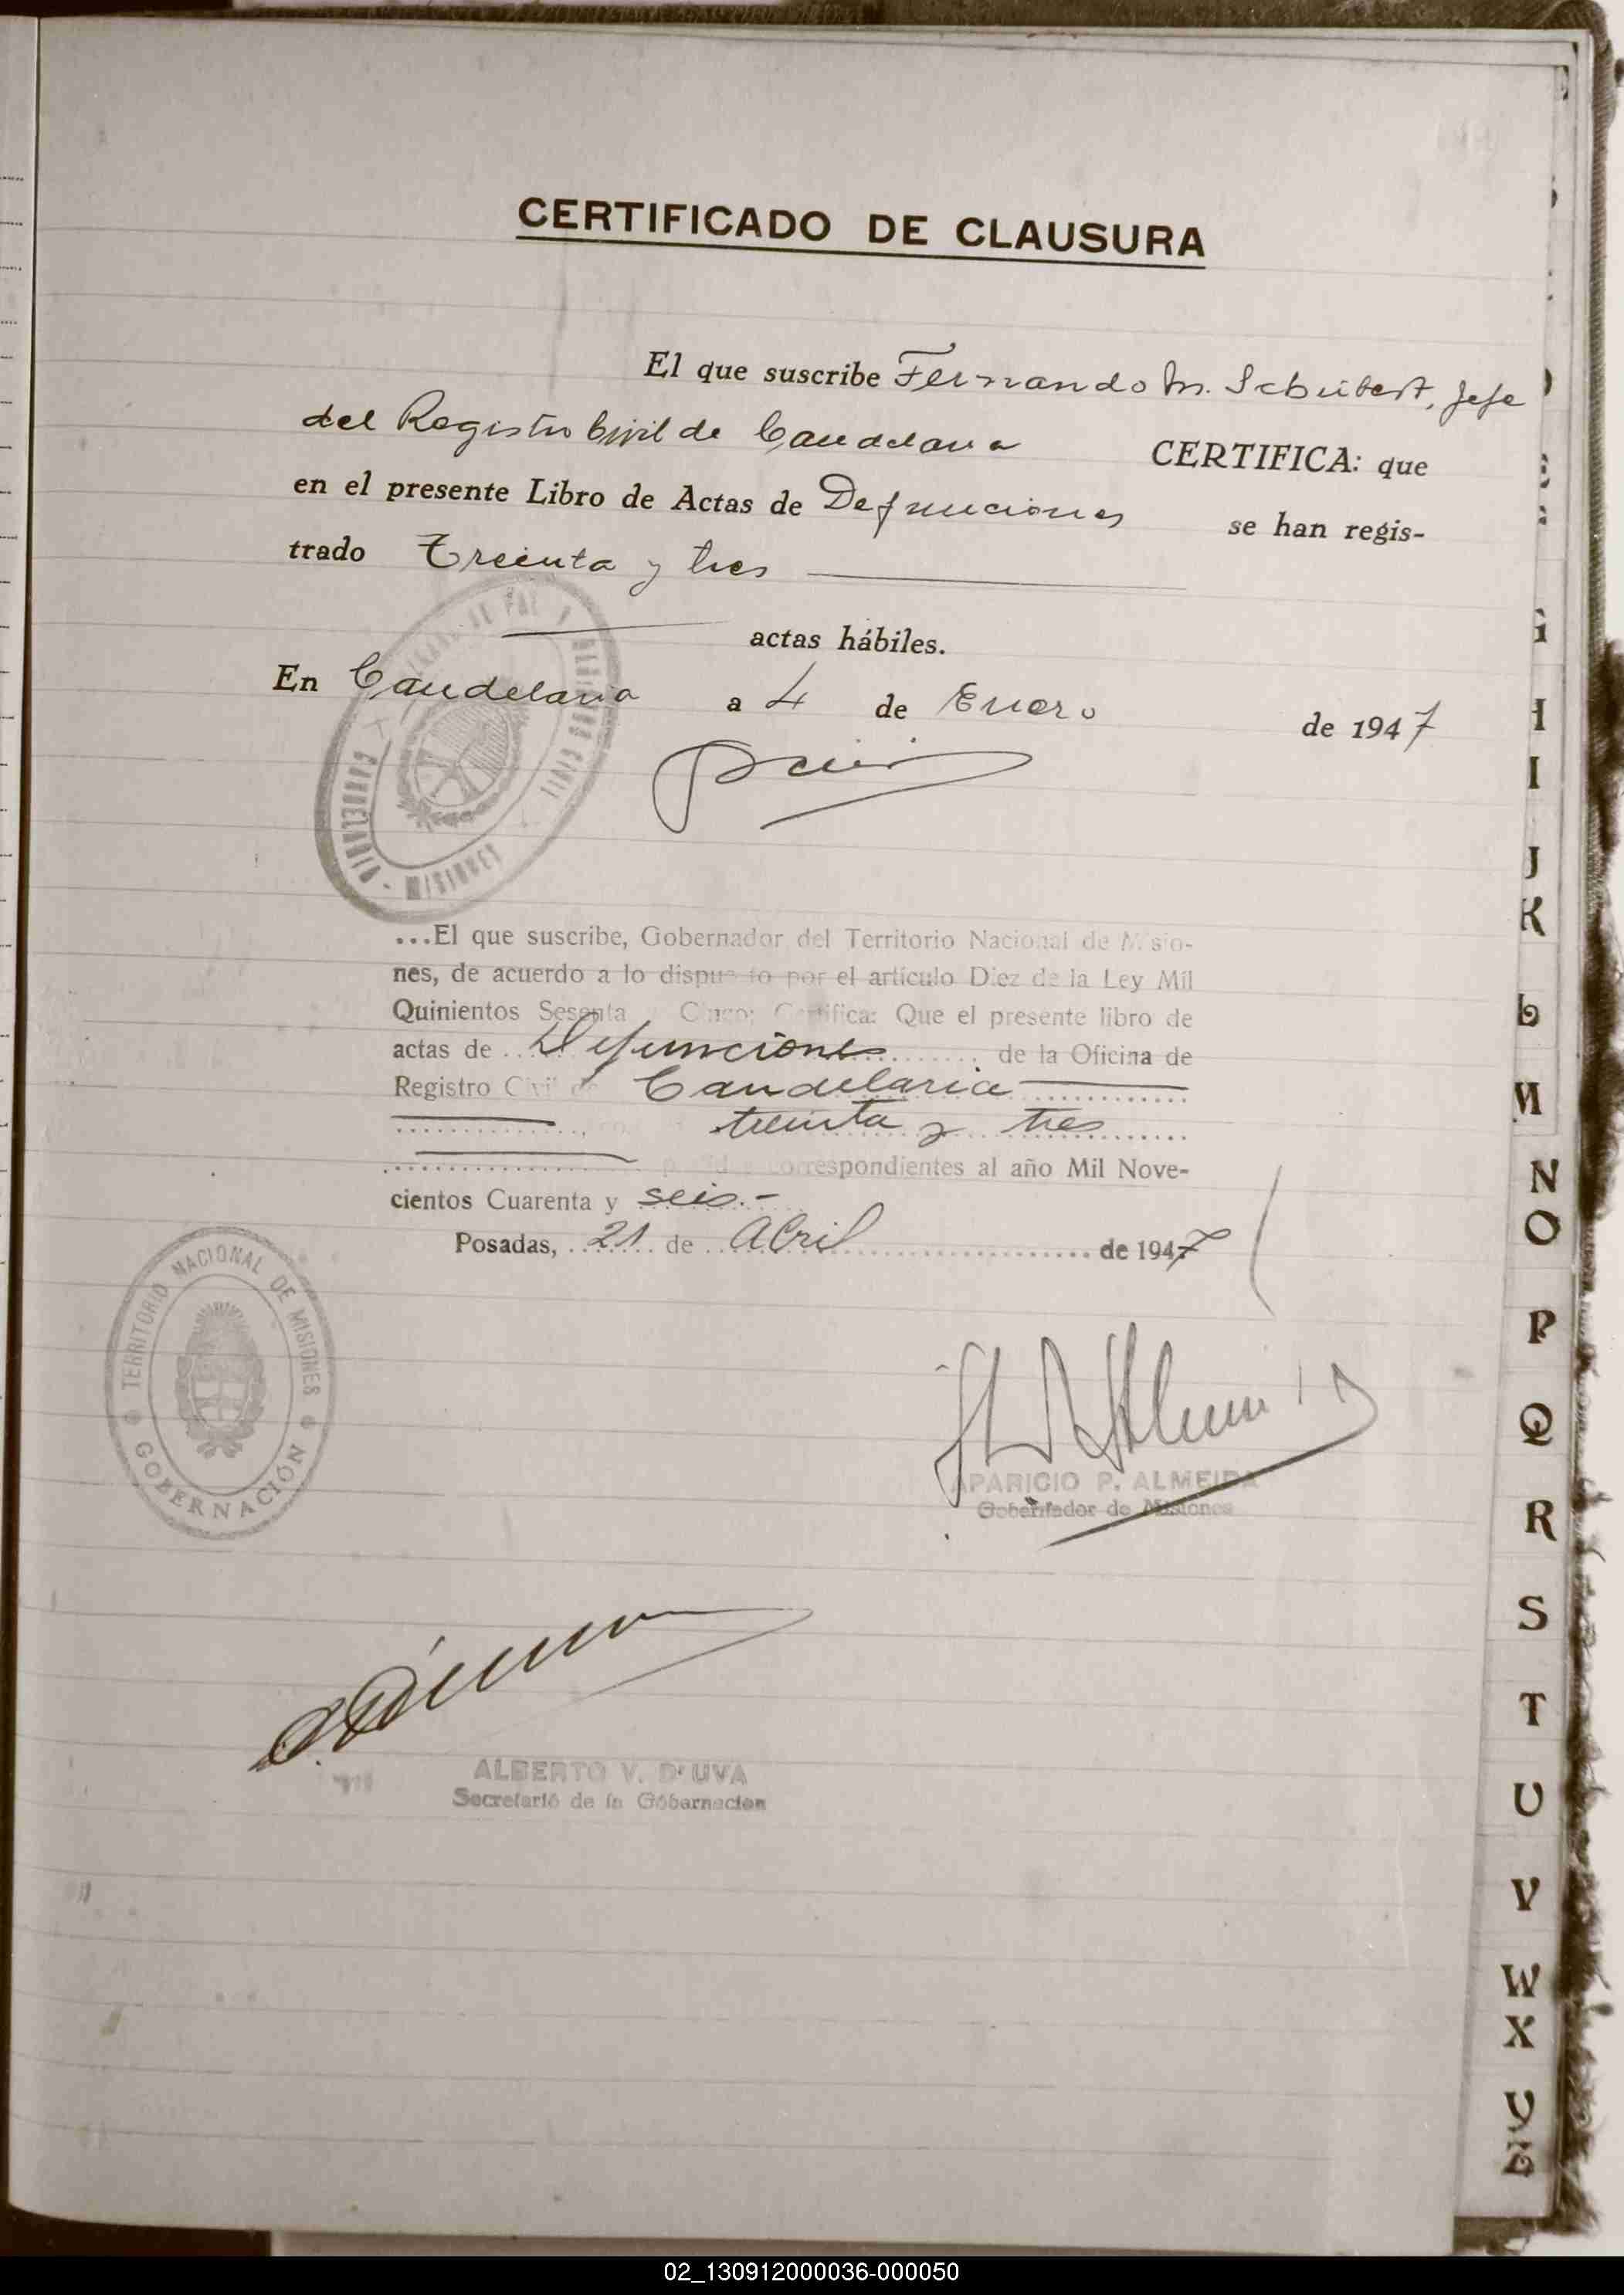 CERTIFICADO DE CLAUSURA
El que suscribe Fernando M. Schubert, Jefe
del Registro Civil de Candelaria CERTIFICA: que
en el presente Libro de Actas de Defunciones se han regis-
trado Treinta y tres
actas hábiles.
En Candelaria a 4 de Enero de 1947
CANDELARIA - MISIONES
...El que suscribe, Gobernador del Territorio Nacional de Misio-
nes, de acuerdo a lo dispuesto por el artículo Diez de la Ley Mil
Quinientos Sesenta y Cinco; Certifica: Que el presente libro de
actas de Defunciones de la Oficina de
Registro Civil de Candelaria
treinta y tres
correspondientes al año Mil Nove-
cientos Cuarenta y seis.-
Posadas, 21 de Abril de 1947
TERRITORIO NACIONAL DE MISIONES
GOBERNACIÓN
APARICIO P. ALMEIDA
Gobernador de Misiones
ALBERTO V. D'UVA
Secretario de la Gobernacion
G
H
I
J
K
L
M
N
O
P
Q
R
S
T
U
V
W
X
02_130912000036-000050